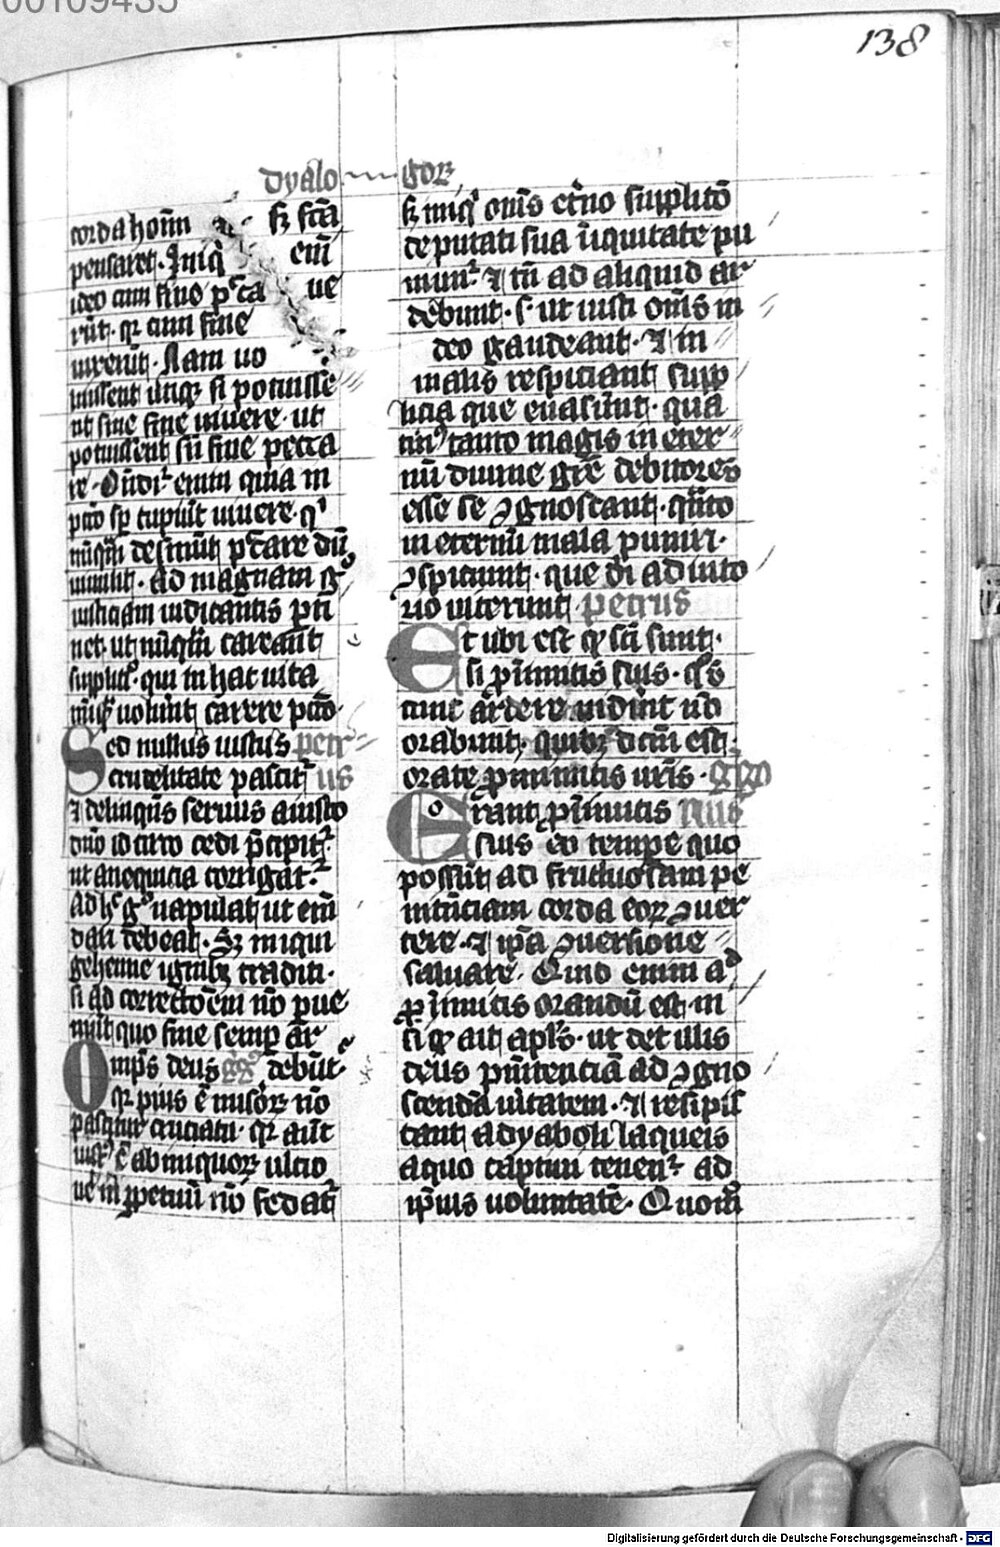 00109435
138
dyalo gor᷑
corda hom̄
sꝫ fcā
pensaret. Iniqͥ
em̄
ideo cum fine pͨca ue
rūt. qꝛ cum fine
uixerūt. Nam uo
luissent utiqꝫ si potuisse
ut sine fine uiuere. ut
potuissent sn̄ fine pecca
re. Oñdͬ enim quia in
pccō sꝑ cupiūt uiuere. qͥ
nūqͣꝫ desinūt pͨcare dū
uiuūt. ad magnam gͦ
iusticiam iudicantis pti
net. ut nūqͣꝫ careant
supplitͦ. qui in hac uita
nūqͣꝫ uoluerūt carere pccō.
Sed nullus iustus petr
crudelitate pascit᷑ us
⁊ delinqūs seruus a iusto
dn̄o idcirco cedi p̄cipit᷑.
ut a nequicia corrigat᷑.
ad hͨ gͦ uapulat ut em̄
dari debeat. Sꝫ iniqui
gehenne ignibꝫ traditi.
si ad correctōem nō pue
niūt quo fine semꝑ ar
Omp̄s deus gͦgͦ debūt.
qꝛ pius ē miẜoꝝ nō
pascitur cruciatu. qꝛ aūt
iustͦ ē ab iniquoꝝ ulcio
ne in ꝑpetuū nō sedat᷑
sꝫ iniqͥ om̄s et̄no supplitō
deputati sua īiquitate pu
niunt᷑. ⁊ tn̄ ad aliquid ar
debunt. s. ut iusti om̄s in
deo gaudeant. ⁊ in
in alis respiciant supp
licia que euasūnt. quā
tinꝰ tanto magis in eter
nū diuine grē debitores
esse se ꝯgnoscant. qn̄to
in eternū mala puniri.
ꝯspiciunt. que di adiuto
rio uicerunt petrus
Et ubi est qꝫ sc̄i sunt.
si ꝓ inīmicis suis. qͦs
tunc ardere uidīnt nō
orabunt. quibꝫ dictū est.
orate ꝓ inimicis ur̄is. grego
Orant ꝓ inīmicis rius
suis eo tempe quo
possūt ad fructuosam pe
nitēciam corda eoꝝ ꝯuer
tere. ⁊ ip̄a ꝯuersione
saluare. Quid enim aͩ
ꝓ inīmicis orandū est. ni
si qͣ ait apl̄s. ut det illis
deus pnītenciā ad ꝯgno
scendā uītatem. ⁊ resipis
cant a dyaboli laqueis
a quo captiui tenent᷑ ad
ip̄ius uoluntatē. Quom̄
Digitalisierung gefördert durch die Deutsche Forschungsgemeinschaft - DFG